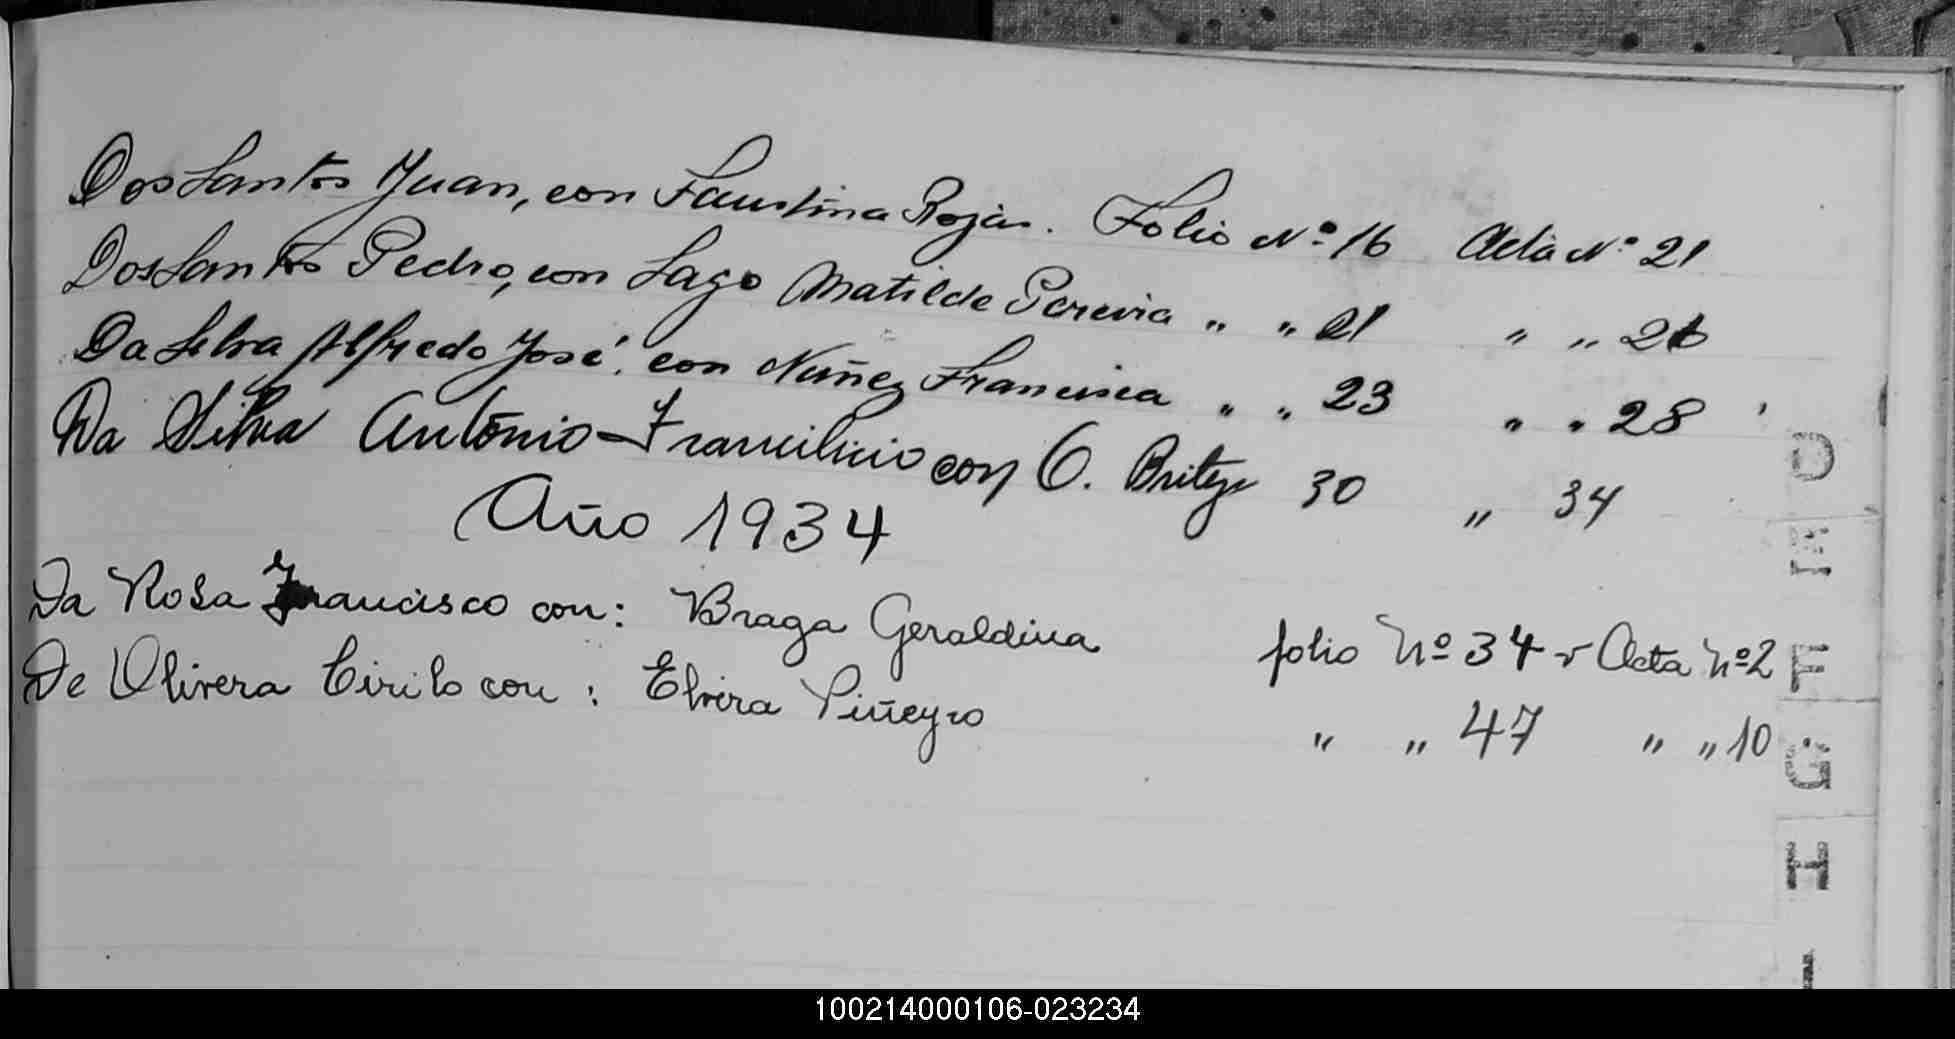 Dos Santos Juan, con Faustina Rojas. Folio Nº 16 Acta Nº 21
Dos Santos Pedro, con Lago Matilde Pereira " " 21 " " 26
Da Silva Alfredo José, con Nuñez Francisca " " 23 " " 28
Da Silva António con O. Britez 30 " 34
Año 1934
Da Rosa Francisco con: Braga Geraldina folio Nº 34 v Acta Nº 2
De Olivera Cirilo con: Elvira Piñeyro " " 47 " " 10
D
E
F
G
H
I
100214000106-023234